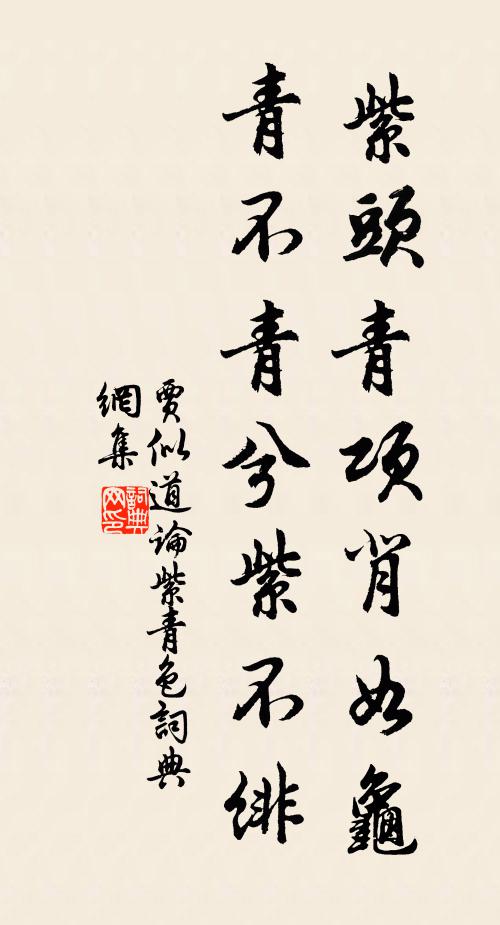 紫頭青項背如龜
青不青兮紫不緋
賈似道論紫青色詞典
網集
詞典
网印